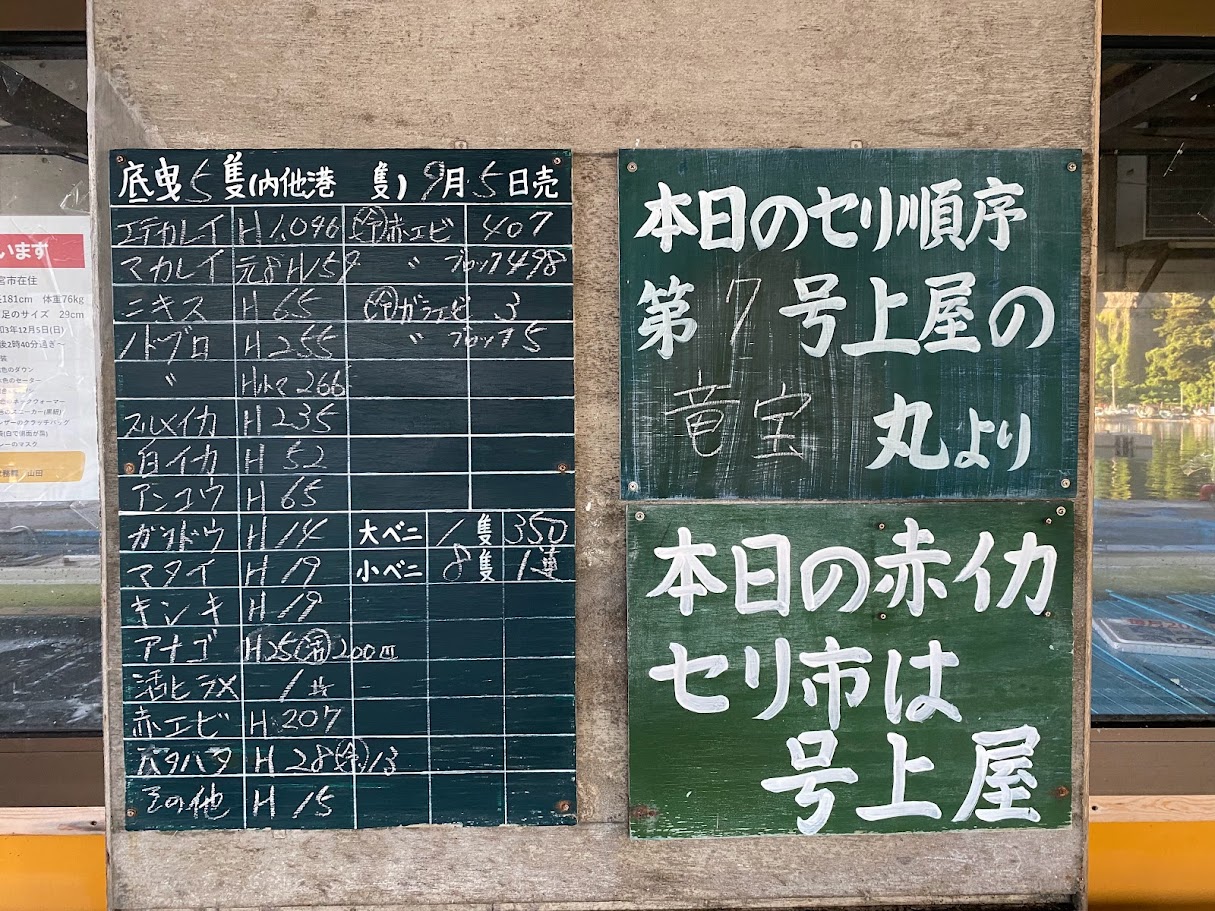 底曳5隻(内他港 隻) 9月5日売
エテカレイ H 1,096 赤エビ 407
マカレイ 元8H159 〃 ブロック498
ニキス H 65 ガラエビ 3
ノドグロ H 255 〃 ブロック5
〃 266
スルメイカ H 235
白イカ H 52
アンコウ H 65
ガンドウ H 14 大ベニ 1隻 350
マタイ H 19 小ベニ 8隻
キンキ H 19
アナゴ H25㊗200
活ヒラメ 1
赤エビ H 207
ハタハタ H 28 13
その他 H 15
本日のセリ順序
第7号上屋の
竜宝 丸より
本日の赤イカ
セリ市は
号上屋
います
宮市在住
181cm 体重76kg
足のサイズ 29cm
3年12月5日(日)
後2時40分過ぎ～
色のダウン
のセーター
のマスク
山田